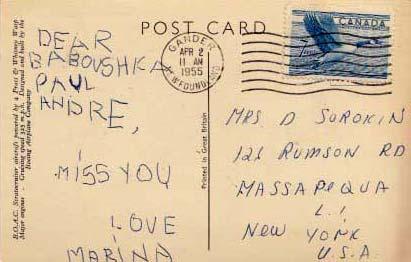 POST CARD
CANADA
GANDER
APR 2
11 AM
1955
NEWFOUNDLAND
DEAR
BABOUSHKA
PAUL
ANDRE,
MISS YOU
LOVE
MARINA
MRS D SOROKIN
121 RUMSON RD
MASSAPEQUA
L.I.
NEW YORK
U.S.A.
Printed in Great Britain
B.O.A.C. Stratocruiser aircraft powered by 4 Pratt & Whitney Wasp
Major engines - Cruising speed 325 m.p.h. Designed and built by the
Boeing Airplane Company